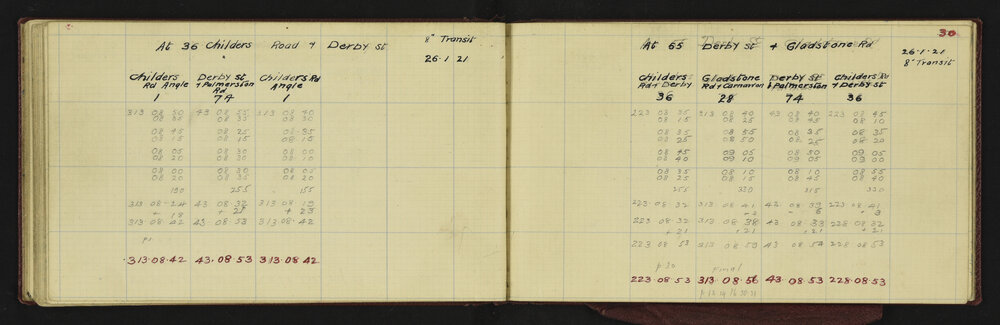 At 36 Childers Road + Derby St
8" Transit
26·1·21
Childers Derby St Childers Rd
Rd Angle + Palmerston Angle
Rd
1 74 1
313 08 50 43 08 313 08 40
08 30 08 30
08 45 08 25 08 35
08 15 08 15 08 15
08 05 08 30 08 00
08 20 08 30 08 10
08 00 08 30 08 05
08 20 08 35 08 20
190 255 155
313 08 24 43 08 32 313 08 19
+ 18 + 23
313·08·42 43·08·53 313·08·42
p1
313·08·42 43·08·53 313·08·42
30
At 65 Derby St + Gladstone Rd
26·1·21
8" Transit
Childers Gladstone Derby St Childers Rd
Rd + Derby Rd + Carnarvon + Palmerston + Derby St
36 28 74 36
223 08 35 313 08 40 43 08 40 223 08 45
08 15 08 25 08 45 08 10
08 35 08 55 08 35 08 35
08 25 08 50 08 25 08 20
08 45 09 05 08 50 09 05
08 40 09 10 09 05 09 00
08 35 08 10 08 10 08 55
08 25 08 15 08 45 08 40
255 330 315 330
223 08 32 313 08 41 43 08 39 223 08 41
223 08 32 313 08 38 08 228 08 32
+ 21 + 21 + 21 + 21
223 08 53 313 08 59 43 08 54 228 08 53
p 30 Final
223·08·53 313·08·56 43·08·53 228·08·53